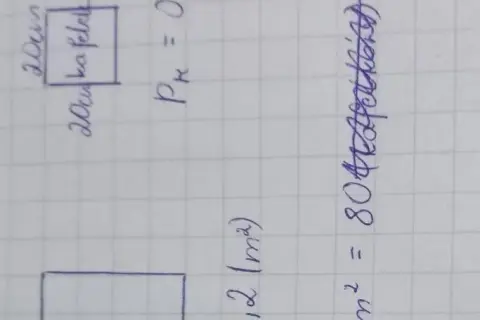 20cm
20cm
kafelek
Pк = 0
,2 (m²)
m² = 80